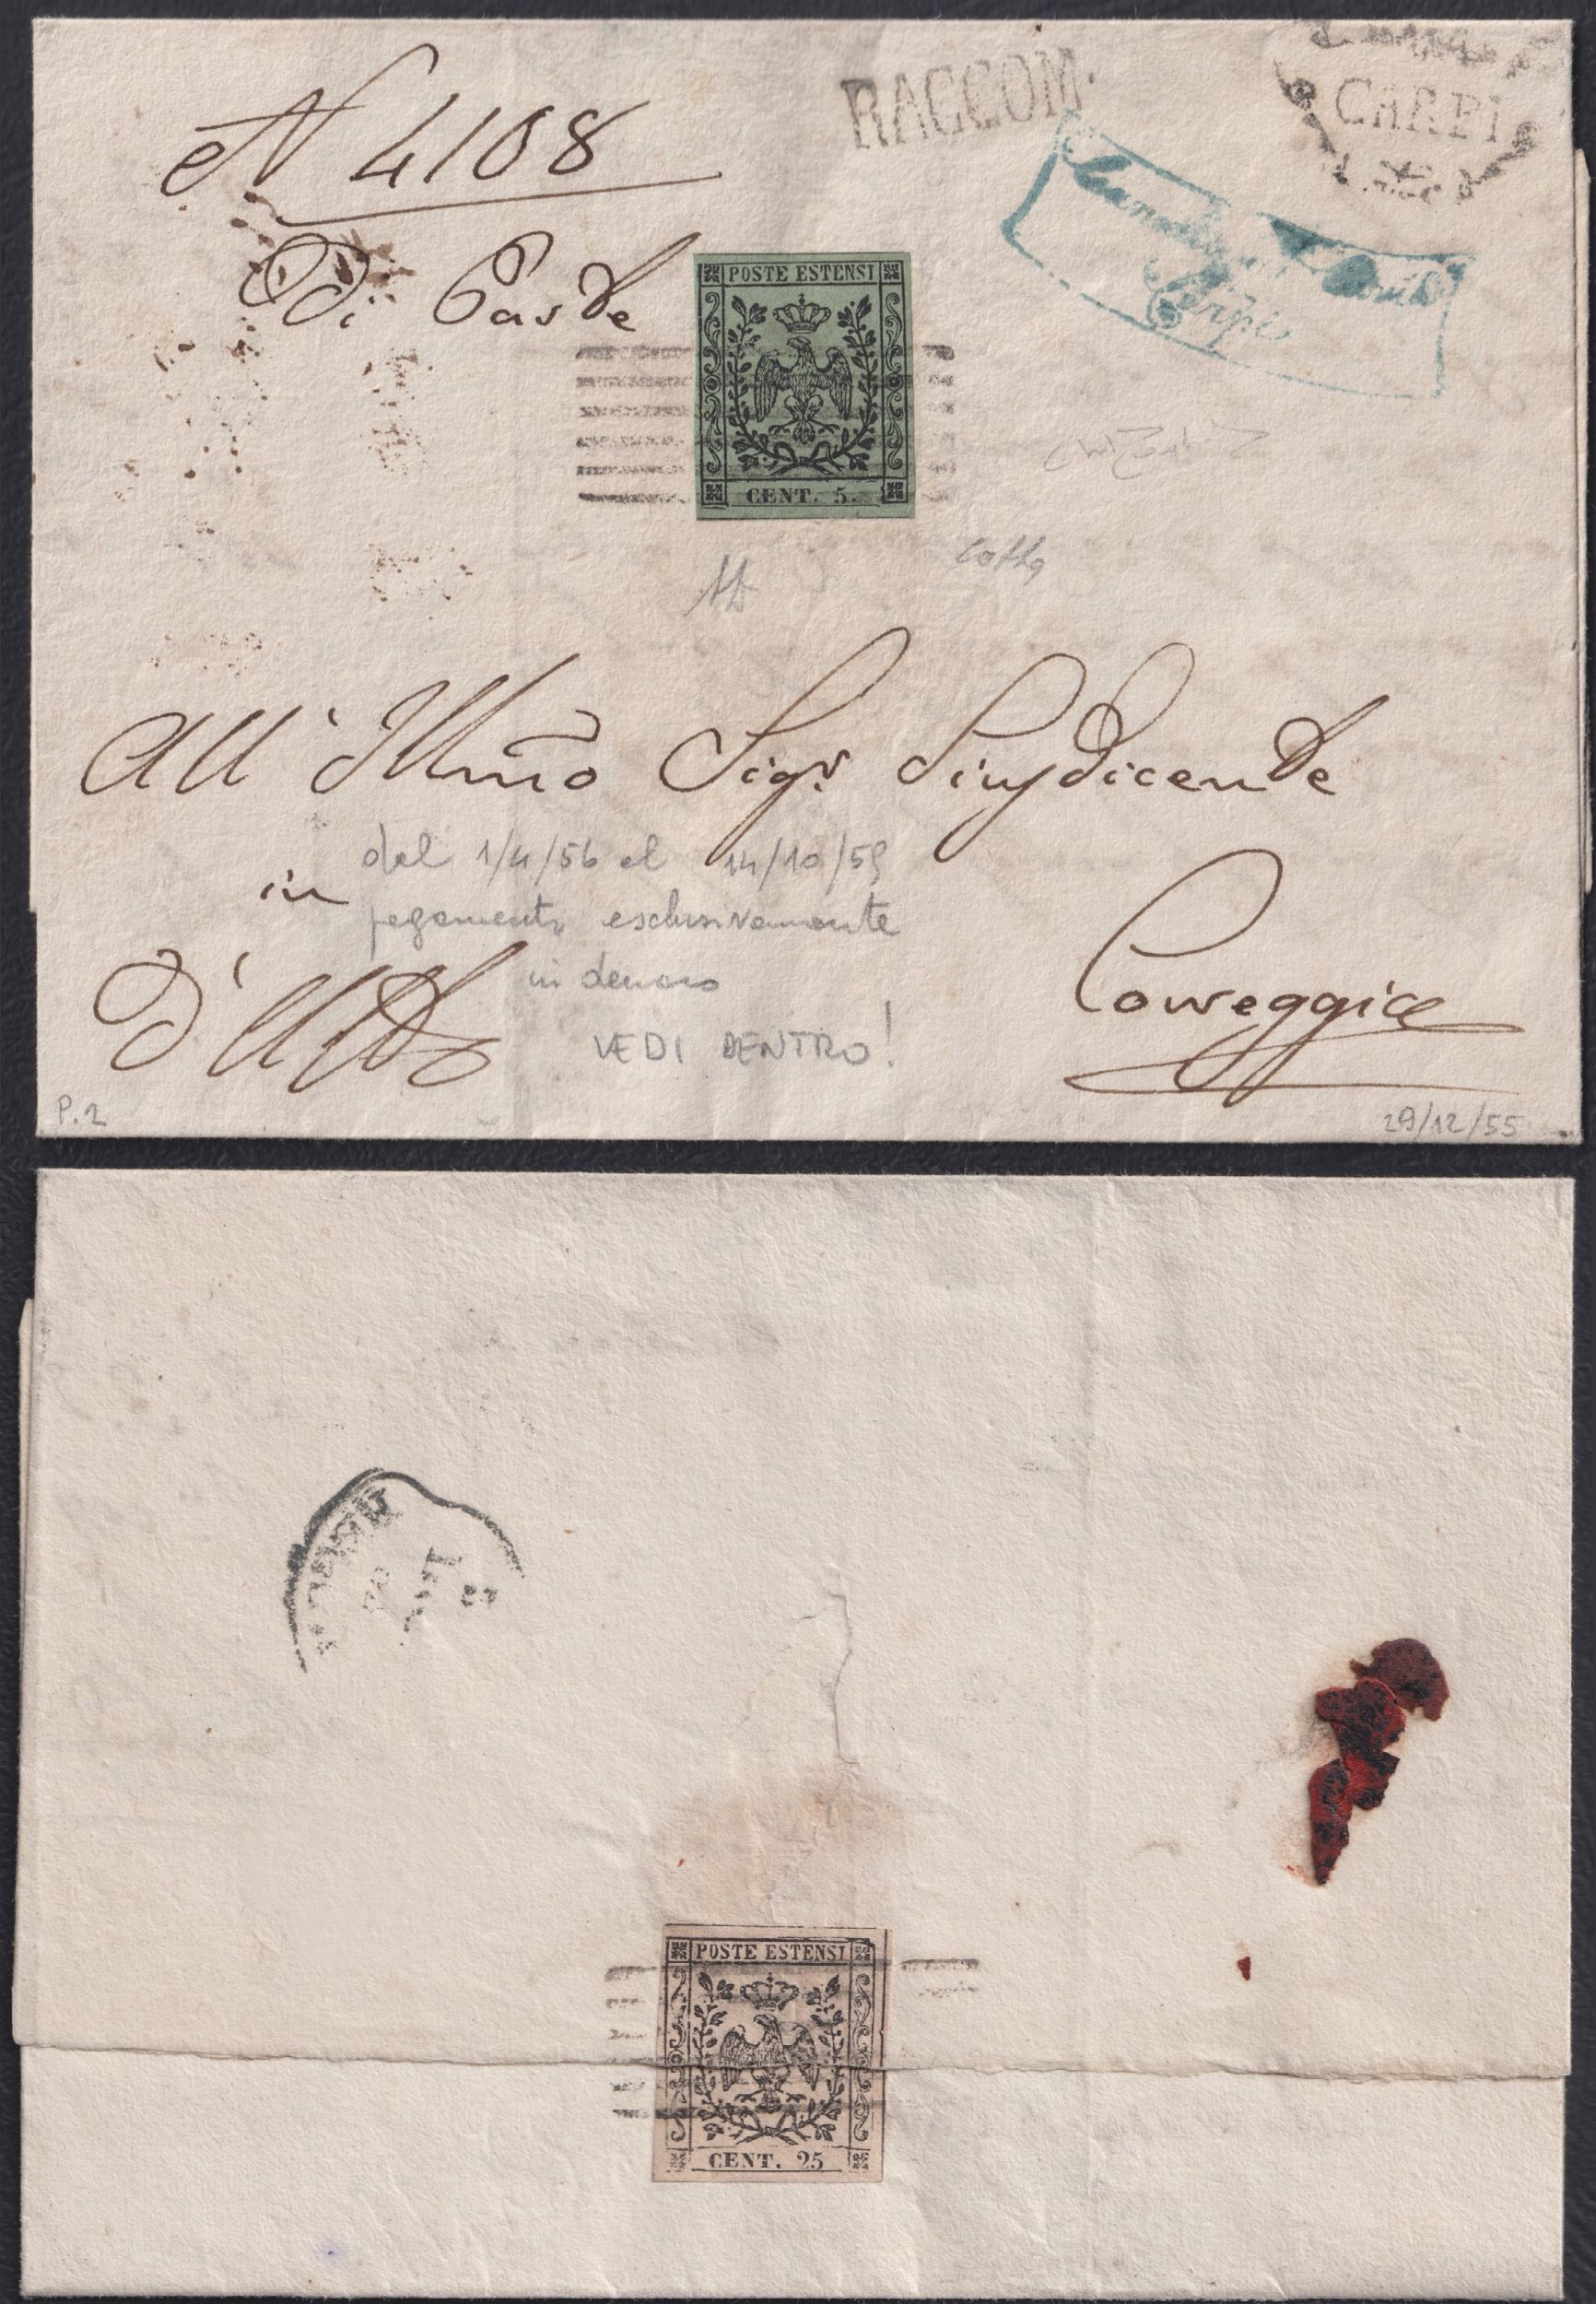 N 4108
RACCOM.
CARPI
Di Parte
POSTE ESTENSI
CENT. 5.
Carpi
All' Illmo Sigr Giusdicente
dal 1/4/56 al 14/10/59
in
pagamento esclusivamente
in denaro
Correggio
d'Uffo
VEDI DENTRO!
P.2
29/12/55
POSTE ESTENSI
CENT. 25